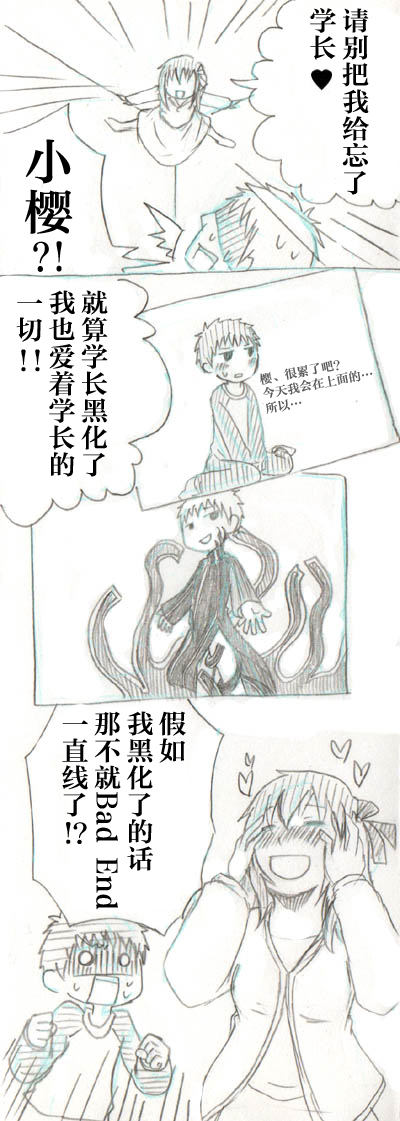 请别把我给忘了
学长♥
小樱?!
樱、很累了吧?
今天我会在上面的…
所以…
就算学长黑化了
我也爱着学长的
一切!!
假如
我黑化了的话
那不就Bad End
一直线了!?